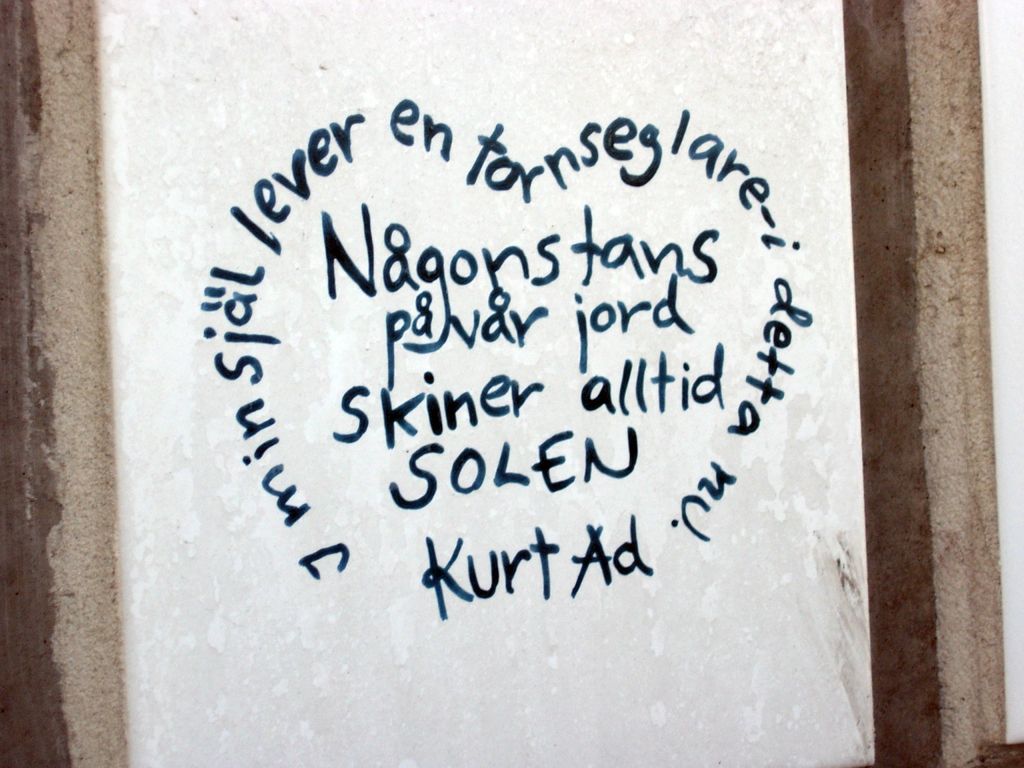 I min själ lever en tornseglare-i detta nu.
Någonstans
på vår jord
skiner alltid
SOLEN
Kurt Ad